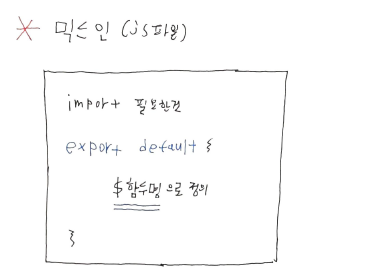 * 믹스인 (js파일)
import 필요한건
export default {
$함수명 으로 정의
}